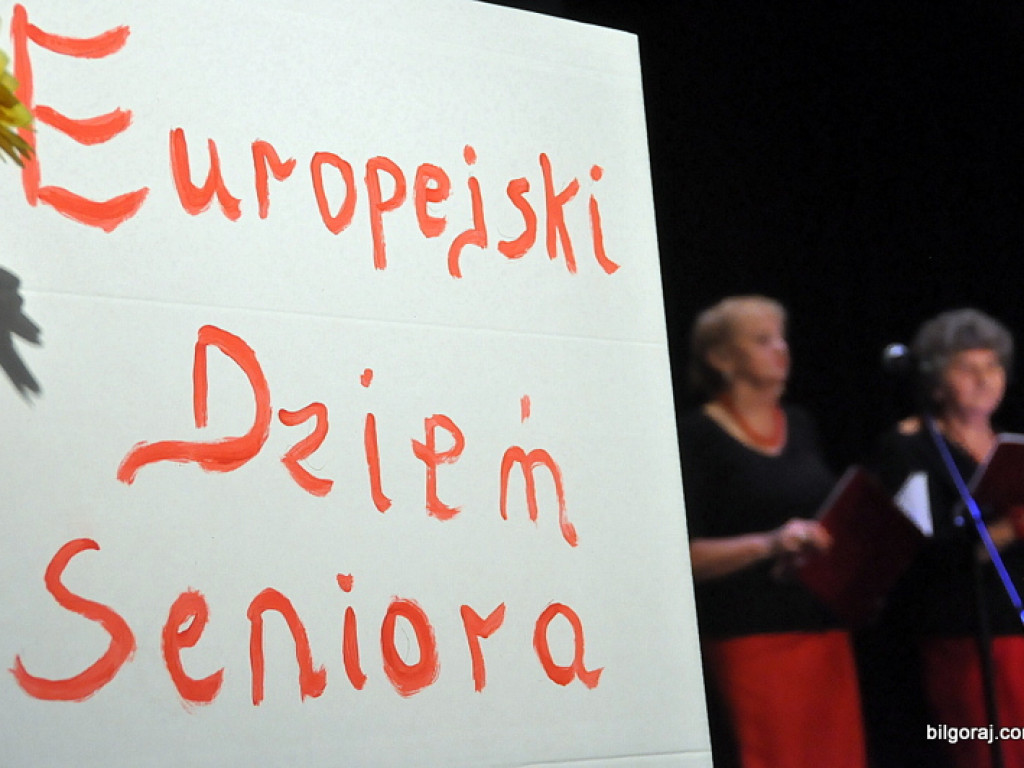 Europejski
Dzień
Seniora
bilgoraj.com